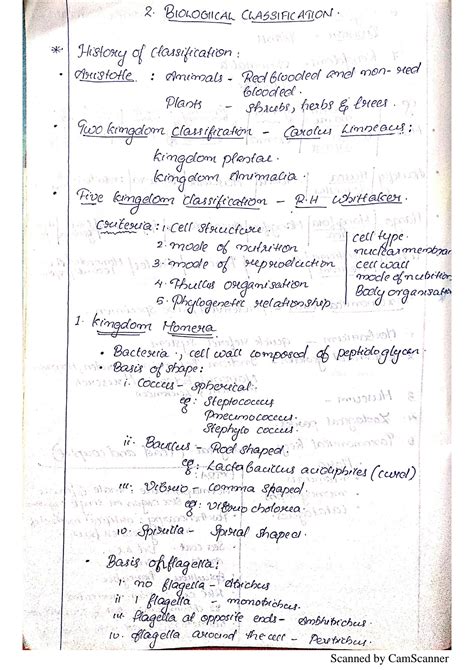 2. BIOLOGIICAL CLASSIFICATION.
* History of classification:
• Aristotle : Animals - Red blooded and non-red
blooded.
Plants - shrubs, herbs & trees.
• Two kingdom classification - Carolus Linneaus:
kingdom plantae.
kingdom Animalia.
• Five kingdom classification - R.H Whittaker.
criteria: 1. cell structure.
2. mode of nutrition
3. mode of reproduction
4. Thallus organisation
5. Phylogenetic relationship.
cell type.
nuclear membran
cell wall
mode of nutrition
Body organisation
1. kingdom Monera
• Bacteria, cell wall composed of peptidoglycan.
• Basis of shape:
i. Coccus - spherical.
eg: Steptococcus
Pneumococcus.
Stephylo coccus.
ii. Bacillus - Rod shaped.
eg: Lactobacillus acidiphires (curd)
iii. Vibrio - comma shaped.
eg: Vibrio cholorea.
iv. Spirilla - Spiral shaped.
• Basis of flagella:
i. no flagella - Atrichus
ii 1 flagella - monotrichus.
iii. flagella at opposite ends - Amphitrichus
iv. flagella around the cell - Peritrichus.
Scanned by CamScanner